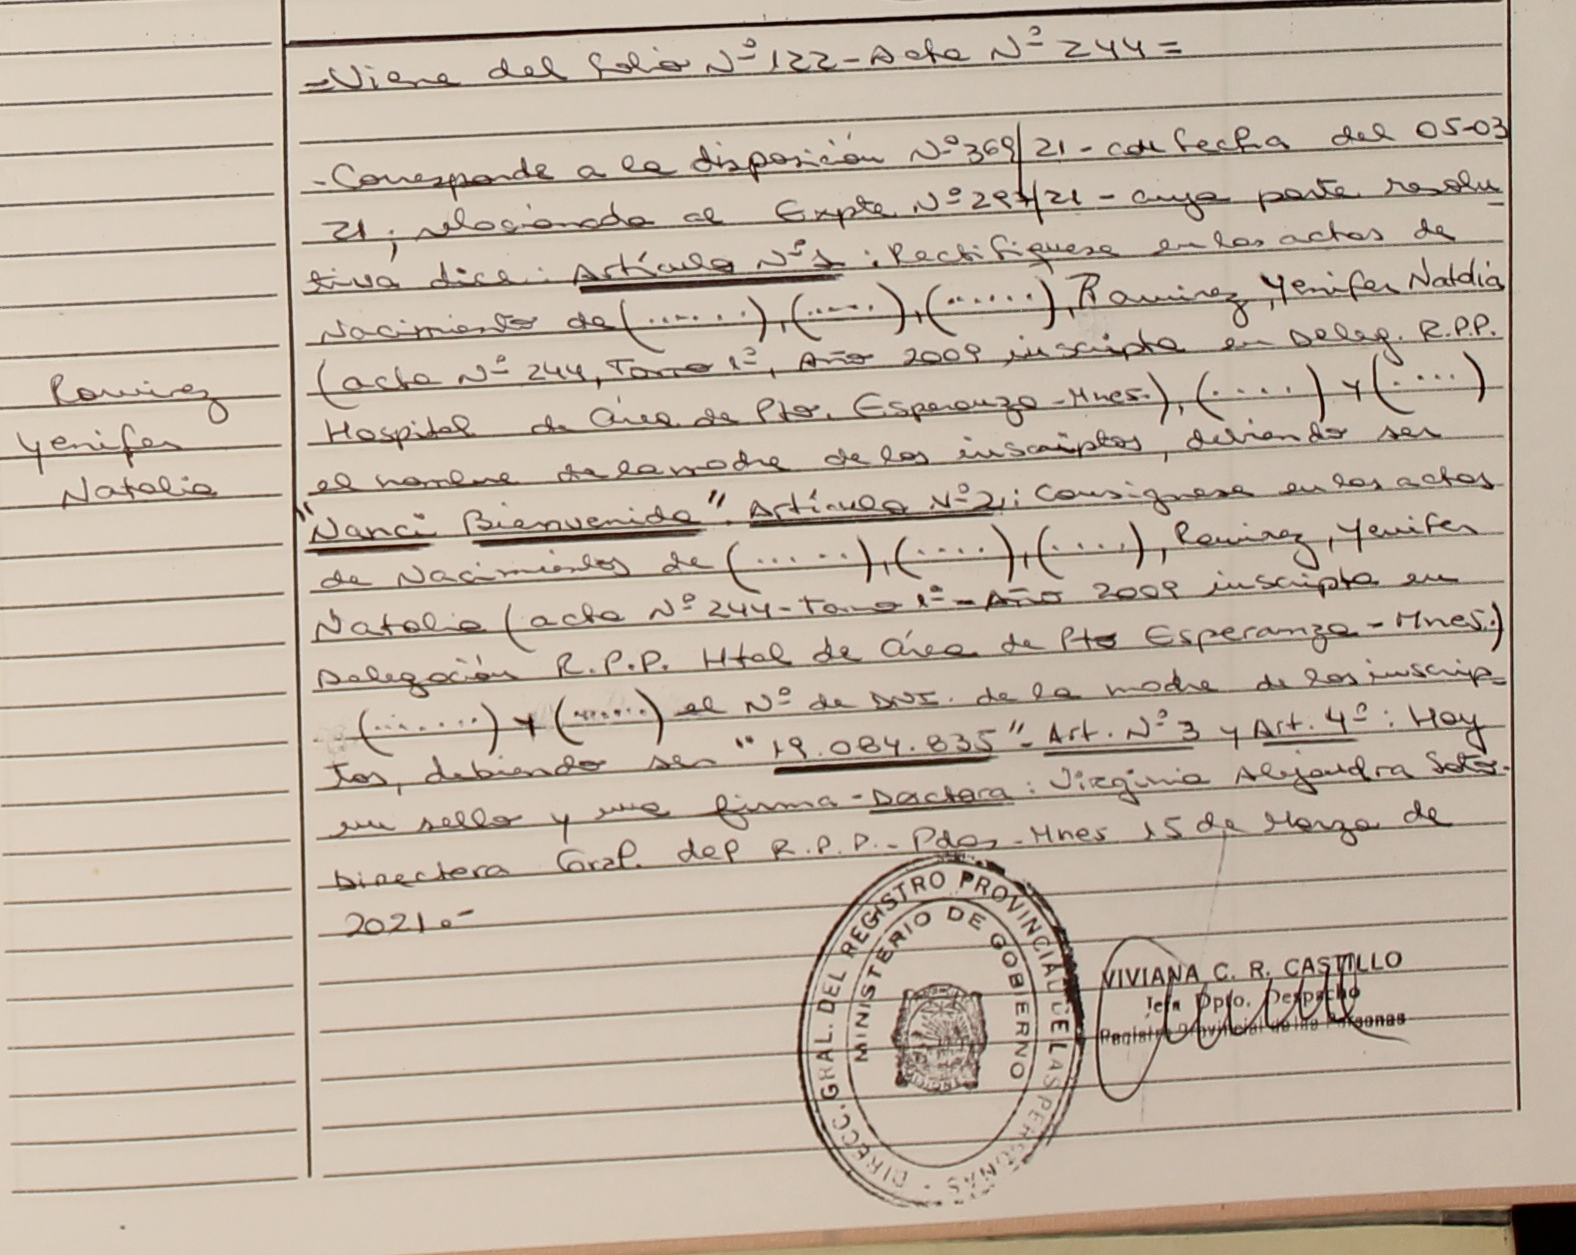 =Viene del folio Nº 122-Acta Nº 244=
-Corresponde a la disposición Nº 369/21-con fecha del 05-03
21, relacionado al Expte Nº 297/21-cuya parte resolu
tiva dice: Artículo Nº1: Rectifiquese en los actas de
Nacimiento de (......), (.....), (......), Ramirez, Yenifer Natalia
(acta Nº 244, Tomo 1º, Año 2009 inscripta en Deleg. R.P.P.
Hospital de Área de Pto. Esperanza-Mnes.), (.....) y (.....)
el nombre de la madre de los inscriptos, debiendo ser
"Nanci Bienvenida". Artículo Nº2: Consignese en los actas
de Nacimientos de (......), (.....), (.....), Ramirez, Yenifer
Natalia (acta Nº 244-Tomo 1º-Año 2009 inscripta en
Delegación R.P.P. Htal de Área de Pto Esperanza-Mnes.)
(.......) y (......) el Nº de DNI. de la madre de los inscrip=
tos, debiendo ser "19.084.835"- Art. Nº3 y Art. 4º: Hay
un sello y una firma-Doctora: Virginia Alejandra Soto.
Directora Gral. del R.P.P.-Pdas-Mnes 15 de Marzo de
2021.-
Ramirez
Yenifer
Natalia
DIRECC. GRAL. DEL REGISTRO PROVINCIAL DE LAS PERSONAS
MINISTERIO DE GOBIERNO
VIVIANA C. R. CASTILLO
Jefa Dpto. Despacho
Registro Provincial de las Personas